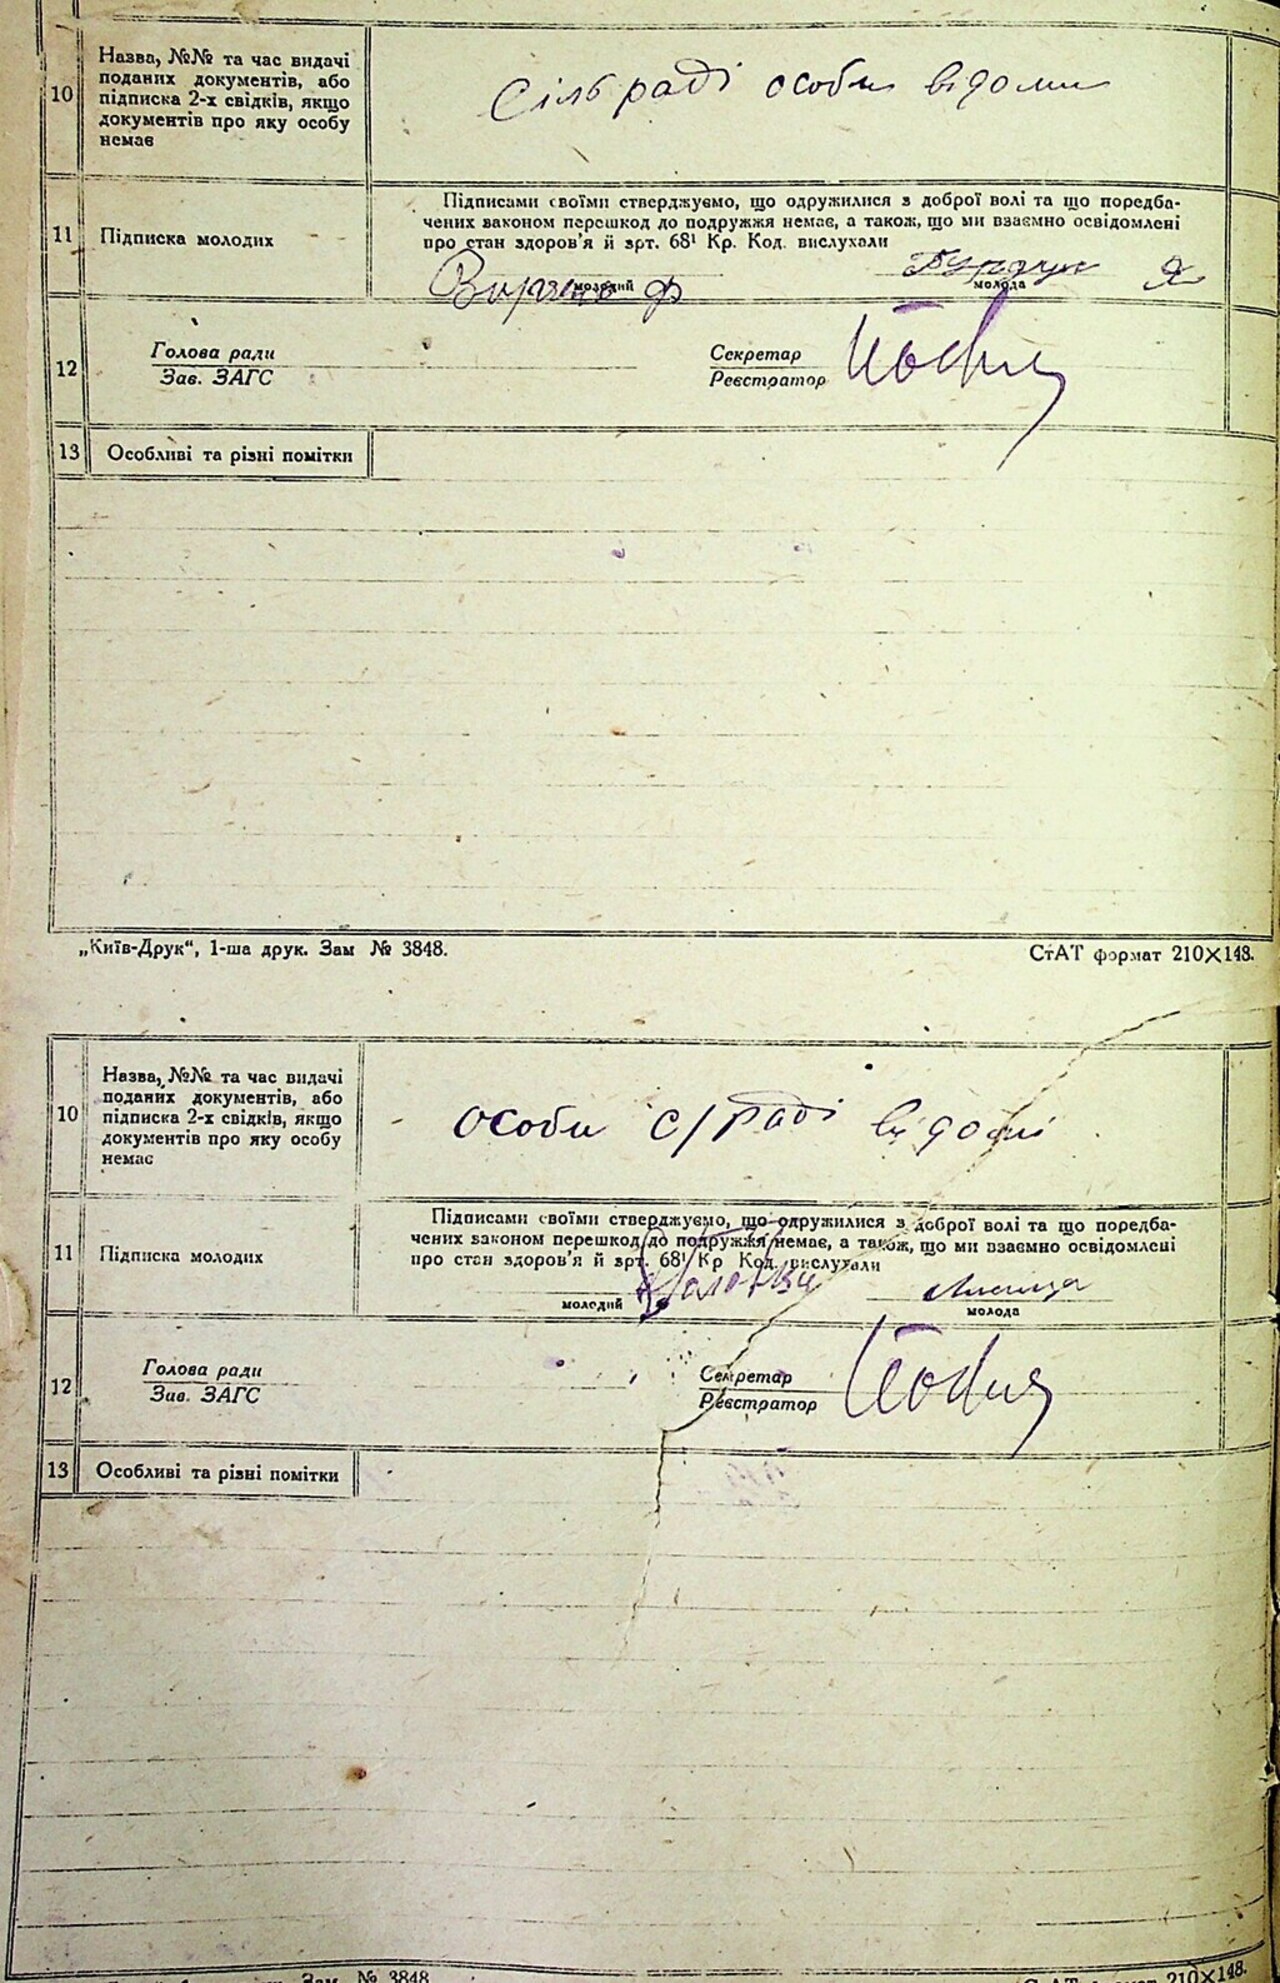 10
Назва, №№ та час видачі
поданих документів, або
підписка 2-х свідків, якщо
документів про яку особу
немає
Сільраді особи відоми
11
Підписка молодих
Підписами своїми стверджуємо, що одружилися з доброї волі та що поредба-
чених законом перешкод до подружжя немає, а також, що ми взаємно освідомлені
про стан здоров'я й арт. 68¹ Кр. Код. вислухали
Ф
молодий
молода
12
Голова ради
Зав. ЗАГС
Секретар
Реєстратор
13
Особливі та різні помітки
„Київ-Друк“, 1-ша друк. Зам № 3848.
СтАТ формат 210×148.
10
Назва, №№ та час видачі
поданих документів, або
підписка 2-х свідків, якщо
документів про яку особу
немає
особи с/раді відомі
11
Підписка молодих
Підписами своїми стверджуємо, що одружилися з доброї волі та що поредба-
чених законом перешкод до подружжя немає, а також, що ми взаємно освідомлені
про стан здоров'я й арт. 68¹ Кр Код. вислухали
молодий
молода
12
Голова ради
Зав. ЗАГС
Секретар
Реєстратор
13
Особливі та різні помітки
Зам. № 3848
СтАТ формат 210×148.